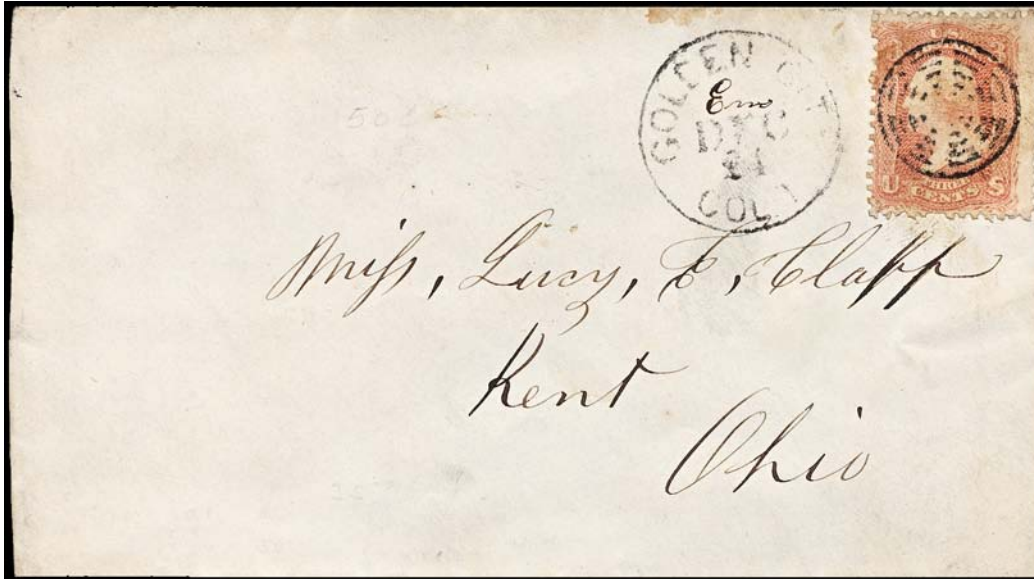 GOLDEN CITY
Em
DEC
24
COL T
U S
THREE
CENTS
Miss, Lucy, E, Clapp
Kent
Ohio